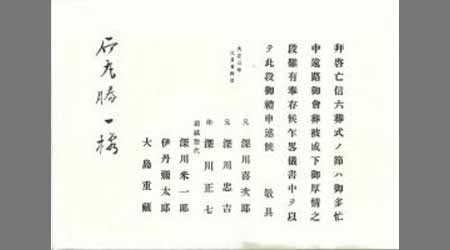 拜啓亡信六葬式ノ節ハ御多忙
中遠路御會葬被成下御厚情之
段難有奉存候乍畧儀書中ヲ以
テ此段御禮申述候　敬具
兄　深川喜次郎
兄　深川忠吉
深川正七
親戚惣代
深川米一郎
伊丹彌太郎
大島重藏
勝一様